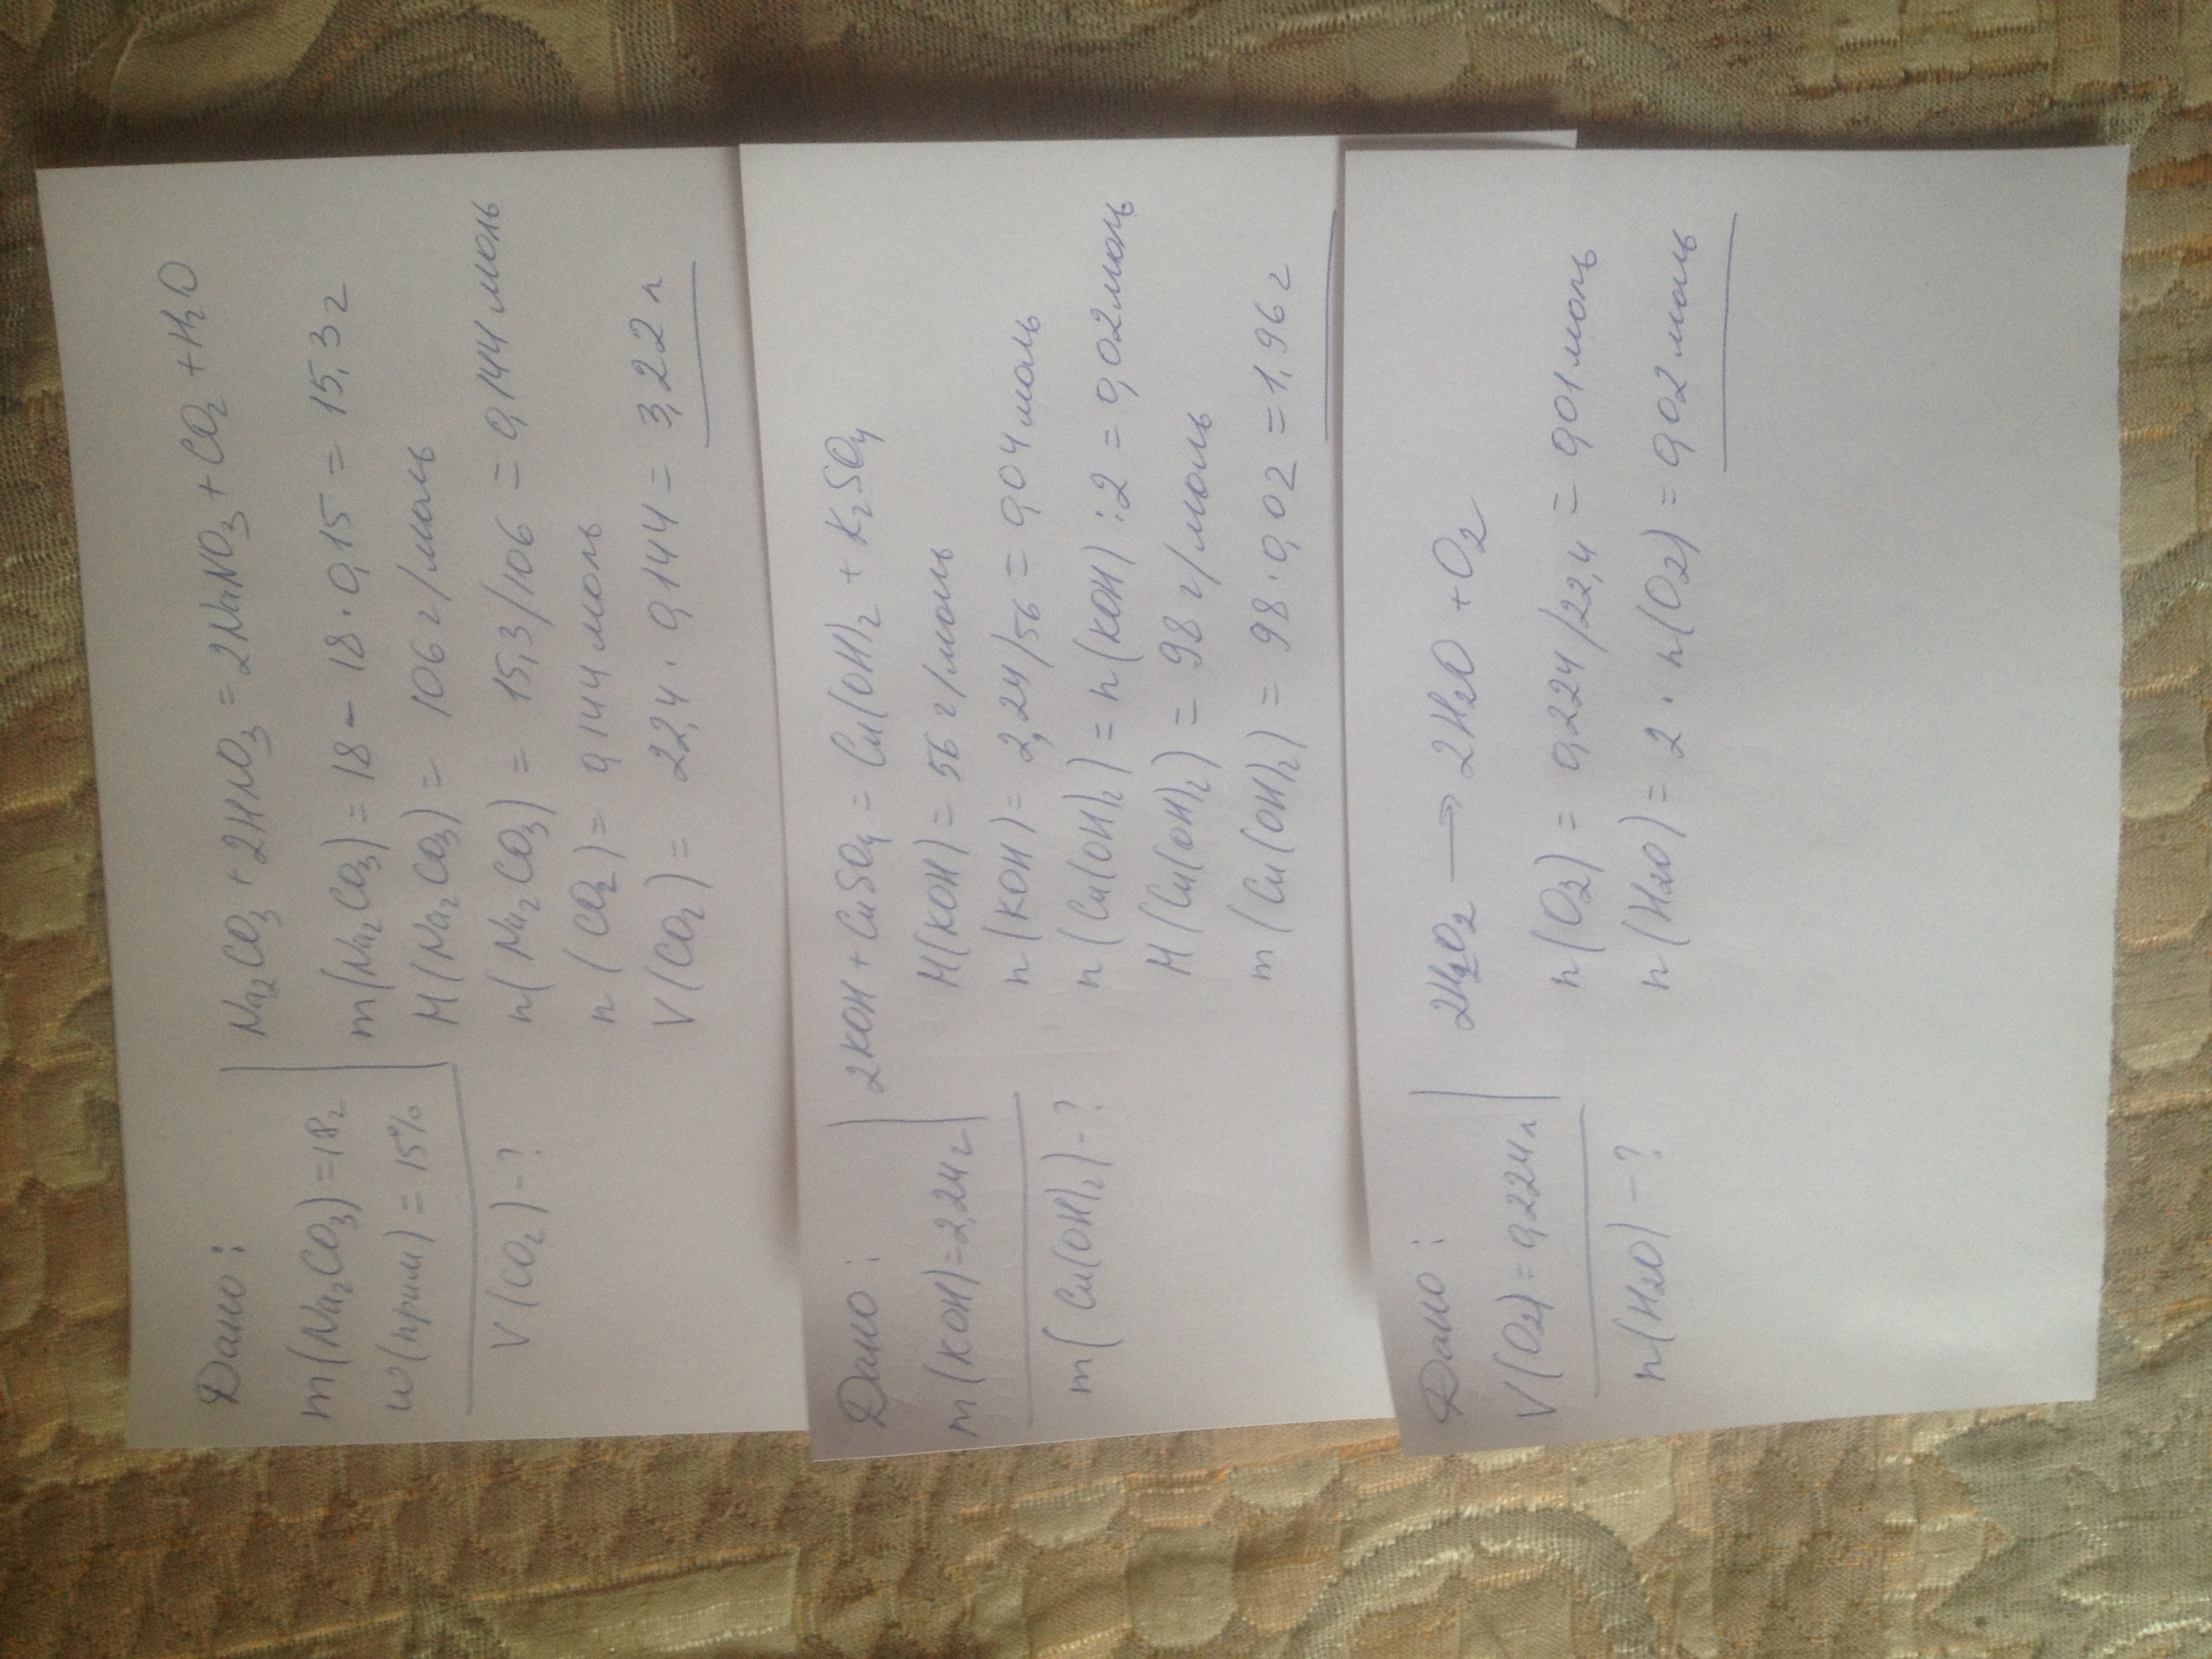 Дано:
m(Na₂CO₃)=18г
w(прим)=15%
V(CO₂)-?
Na₂CO₃+2HNO₃=2NaNO₃+CO₂+H₂O
m(Na₂CO₃)=18-18·0,15=15,3г
M(Na₂CO₃)=106г/моль
n(Na₂CO₃)=15,3/106=0,144моль
n(CO₂)=0,144моль
V(CO₂)=22,4·0,144=3,22л
Дано:
m(KOH)=2,24г
m(Cu(OH)₂)-?
2KOH+CuSO₄=Cu(OH)₂+K₂SO₄
M(KOH)=56г/моль
n(KOH)=2,24/56=0,04моль
n(Cu(OH)₂)=n(KOH):2=0,02моль
M(Cu(OH)₂)=98г/моль
m(Cu(OH)₂)=98·0,02=1,96г
Дано:
V(O₂)=0,224л
n(H₂O)-?
2H₂O₂→2H₂O+O₂
n(O₂)=0,224/22,4=0,01моль
n(H₂O)=2·n(O₂)=0,02моль